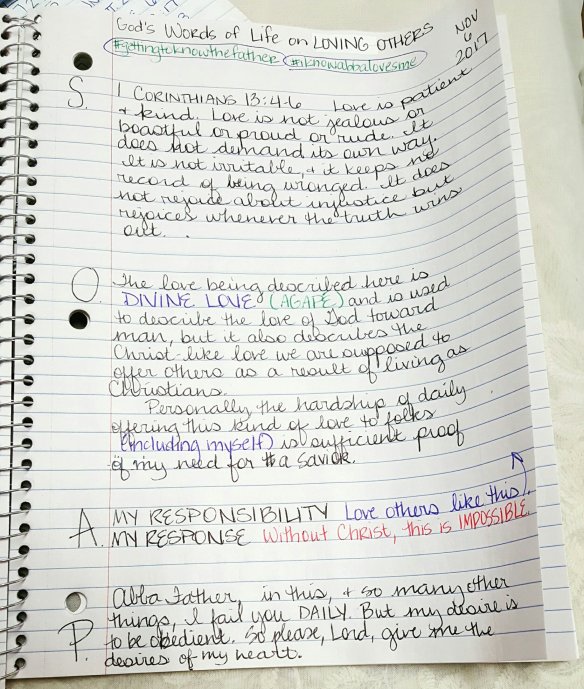 God's Words of Life on LOVING OTHERS
NOV
6
2017
#gettingtoknowthefather #iknowabbalovesme
S. 1 CORINTHIANS 13:4-6 Love is patient
+ kind. Love is not jealous or
boastful or proud or rude. It
does not demand its own way.
It is not irritable, + it keeps no
record of being wronged. It does
not rejoice about injustice but
rejoices whenever the truth wins
out.
O. The love being described here is
DIVINE LOVE (AGAPE) and is used
to describe the love of God toward
man, but it also describes the
Christ-like love we are supposed to
offer others as a result of living as
Christians.
Personally, the hardship of daily
offering this kind of love to folks
(including myself) is sufficient proof
of my need for a Savior.
A. MY RESPONSIBILITY Love others like this
MY RESPONSE Without Christ, this is IMPOSSIBLE.
P. Abba Father, in this, + so many other
things, I fail you DAILY. But my desire is
to be obedient. So please, Lord, give me the
desires of my heart.